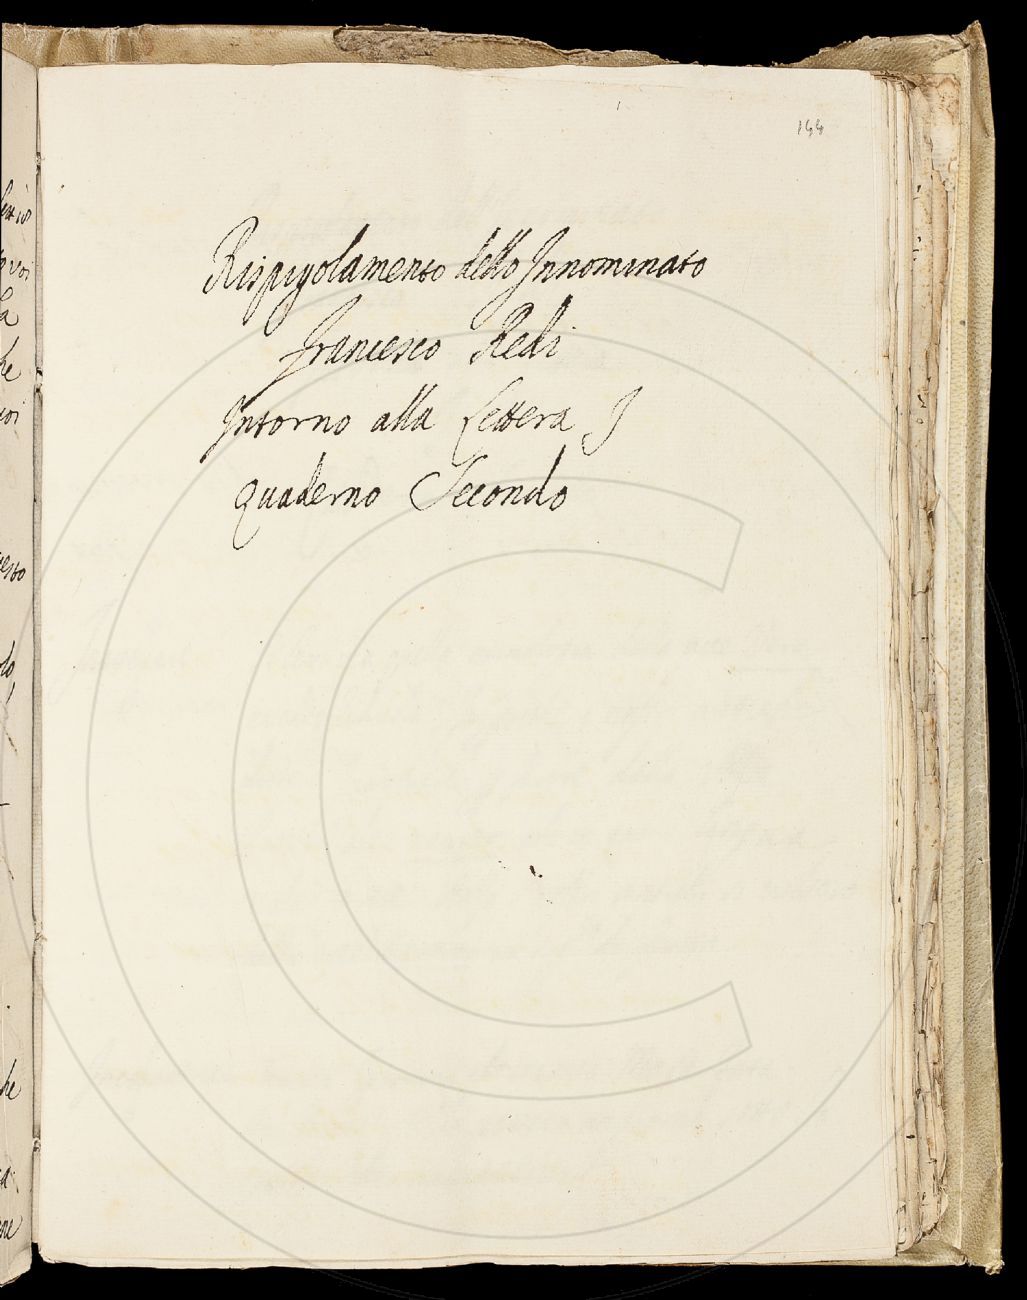 144
Rispigolamento dello Innominato
Francesco Redi
Intorno alla Lettera I
quaderno Secondo